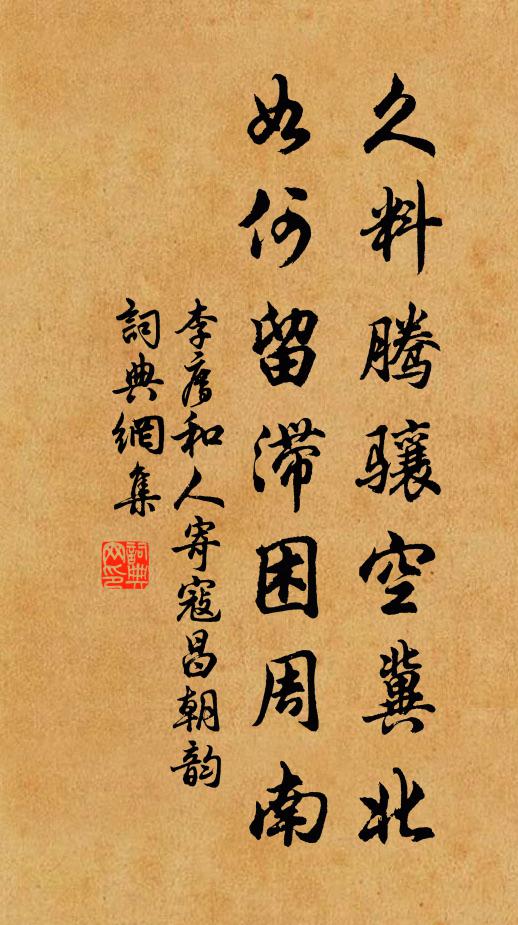 久料腾骧空冀北
如何留滞困周南
李廌和人寄寇昌朝韵
詞典網集
詞典网印